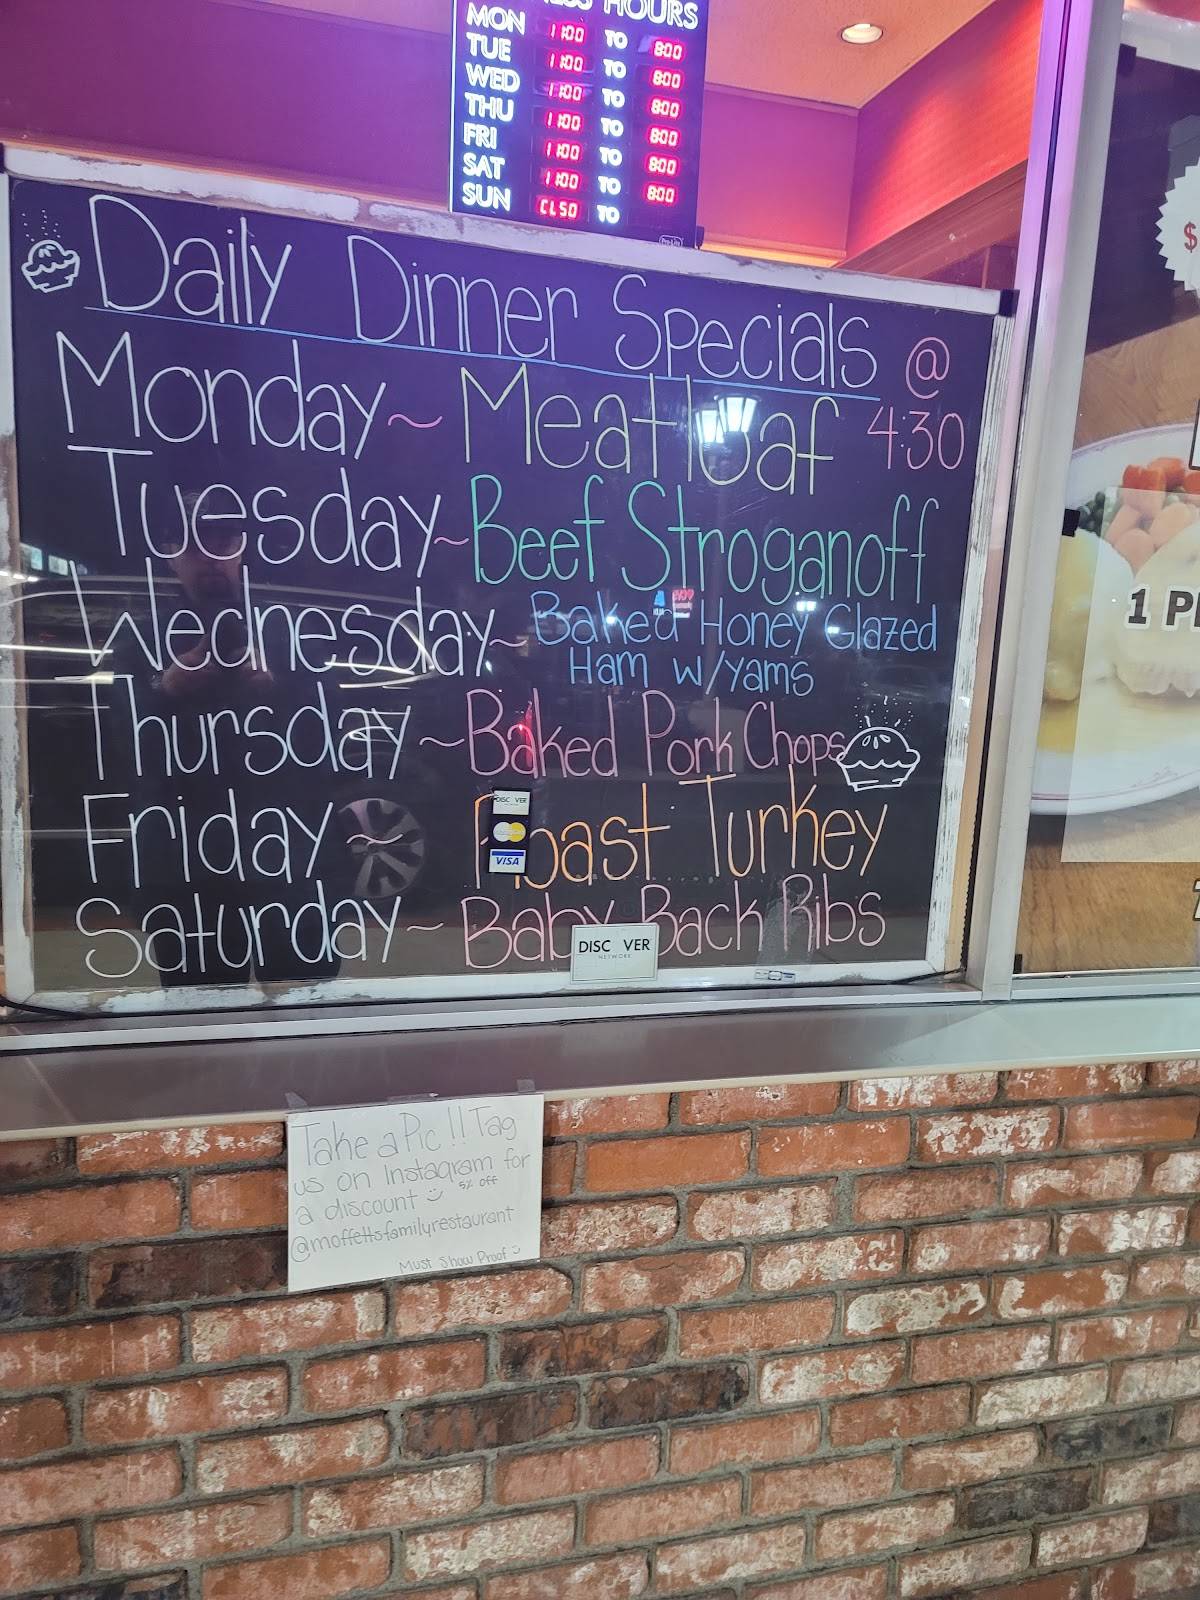 HOURS
MON 11:00 TO 8:00
TUE 11:00 TO 8:00
WED 11:00 TO 8:00
THU 11:00 TO 8:00
FRI 11:00 TO 8:00
SAT 11:00 TO 8:00
SUN CLSD TO
Daily Dinner Specials @
4:30
Monday~ Meatloaf
Tuesday~Beef Stroganoff
Wednesday~ Baked Honey Glazed
Ham w/yams
Thursday~Baked Pork Chops
Friday~ Roast Turkey
Saturday~ Baby Back Ribs
DISC VER
VISA
DISC VER
NETWORK
$
1 P
Take a Pic!! Tag
us on Instagram for
a discount 5% off
@moffettsfamilyrestaurant
Must Show Proof